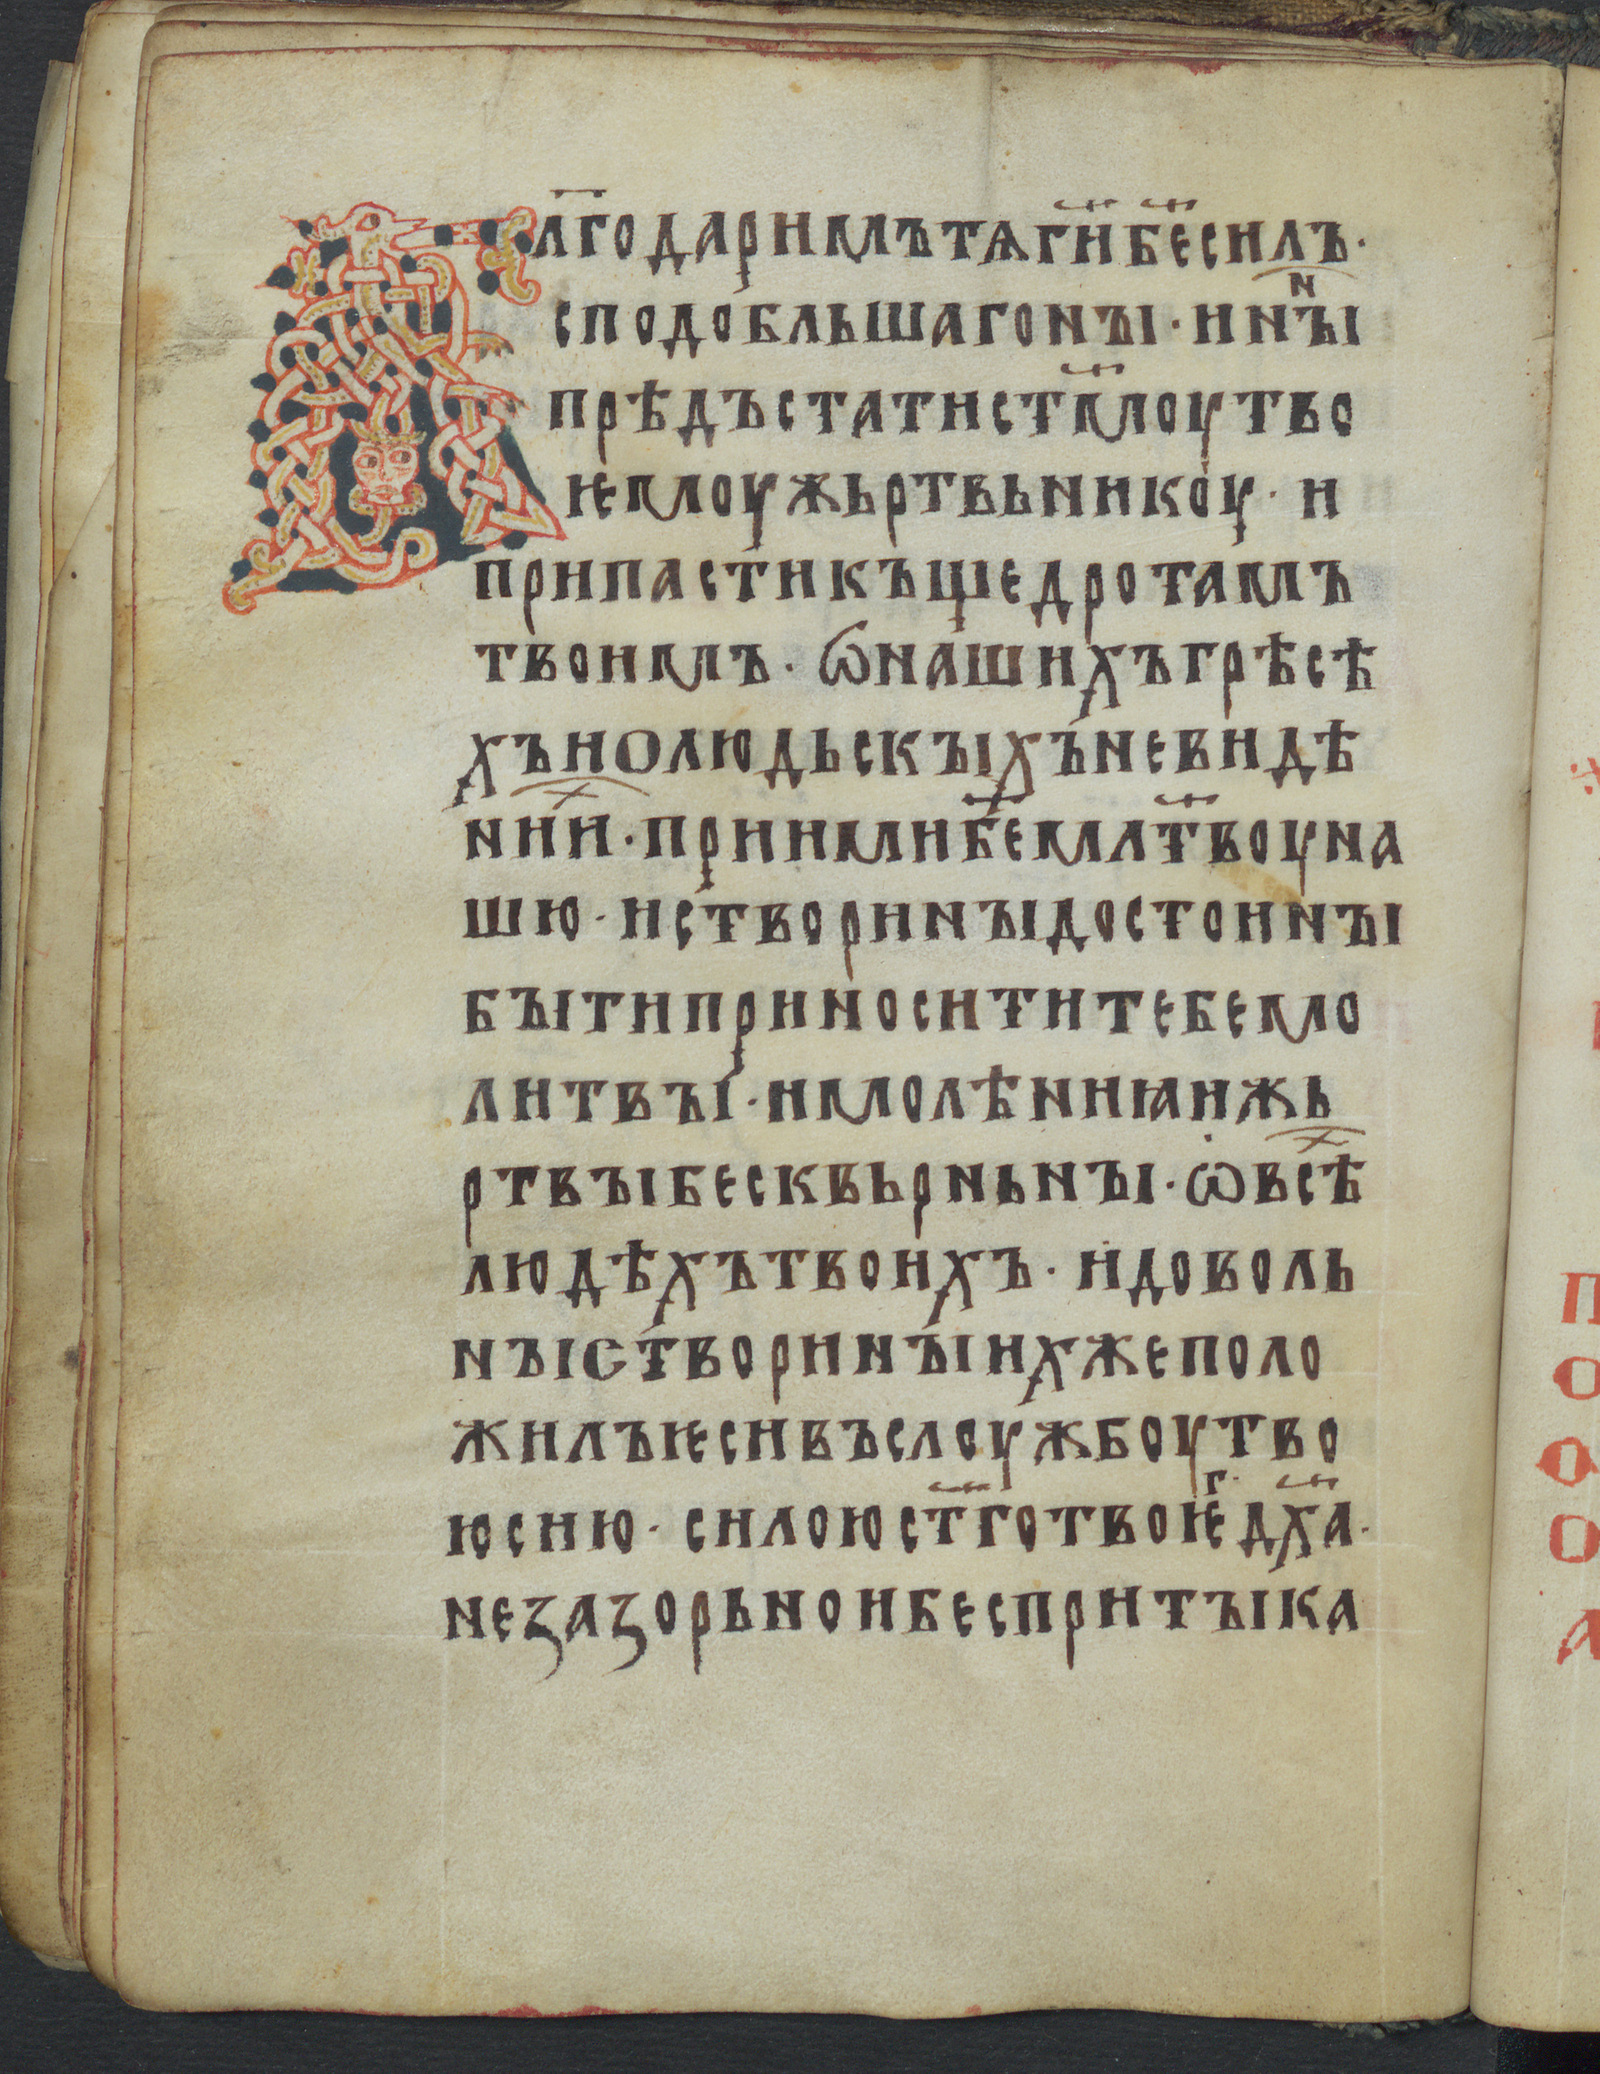 Блг҃одаримъ тѧ ги҃ бе҃ силъ·
сподобльшаго ны · и нн꙽ы
прѣдъстати ст҃моу тво
ѥмоу жьртвьникоу · и
припасти къ щедротамъ
твоимъ · ѿ нашихъ грѣсѣ
хъ и о людьскыхъ невидѣ
нии · приими бе҃ млт҃воу на
шю · и створи ны достоины
быти приносити тебе мо
литвы · и молѣниꙗ и жь
ртвы бесквьрньны · ѡ всѣ
людѣхъ твоихъ · и доволь
ны створи ны ихже поло
жилъ ѥси въ слоужбоу тво
ю сию · силою ст҃го твоѥг дх҃а·
незазорьно и беспритыка